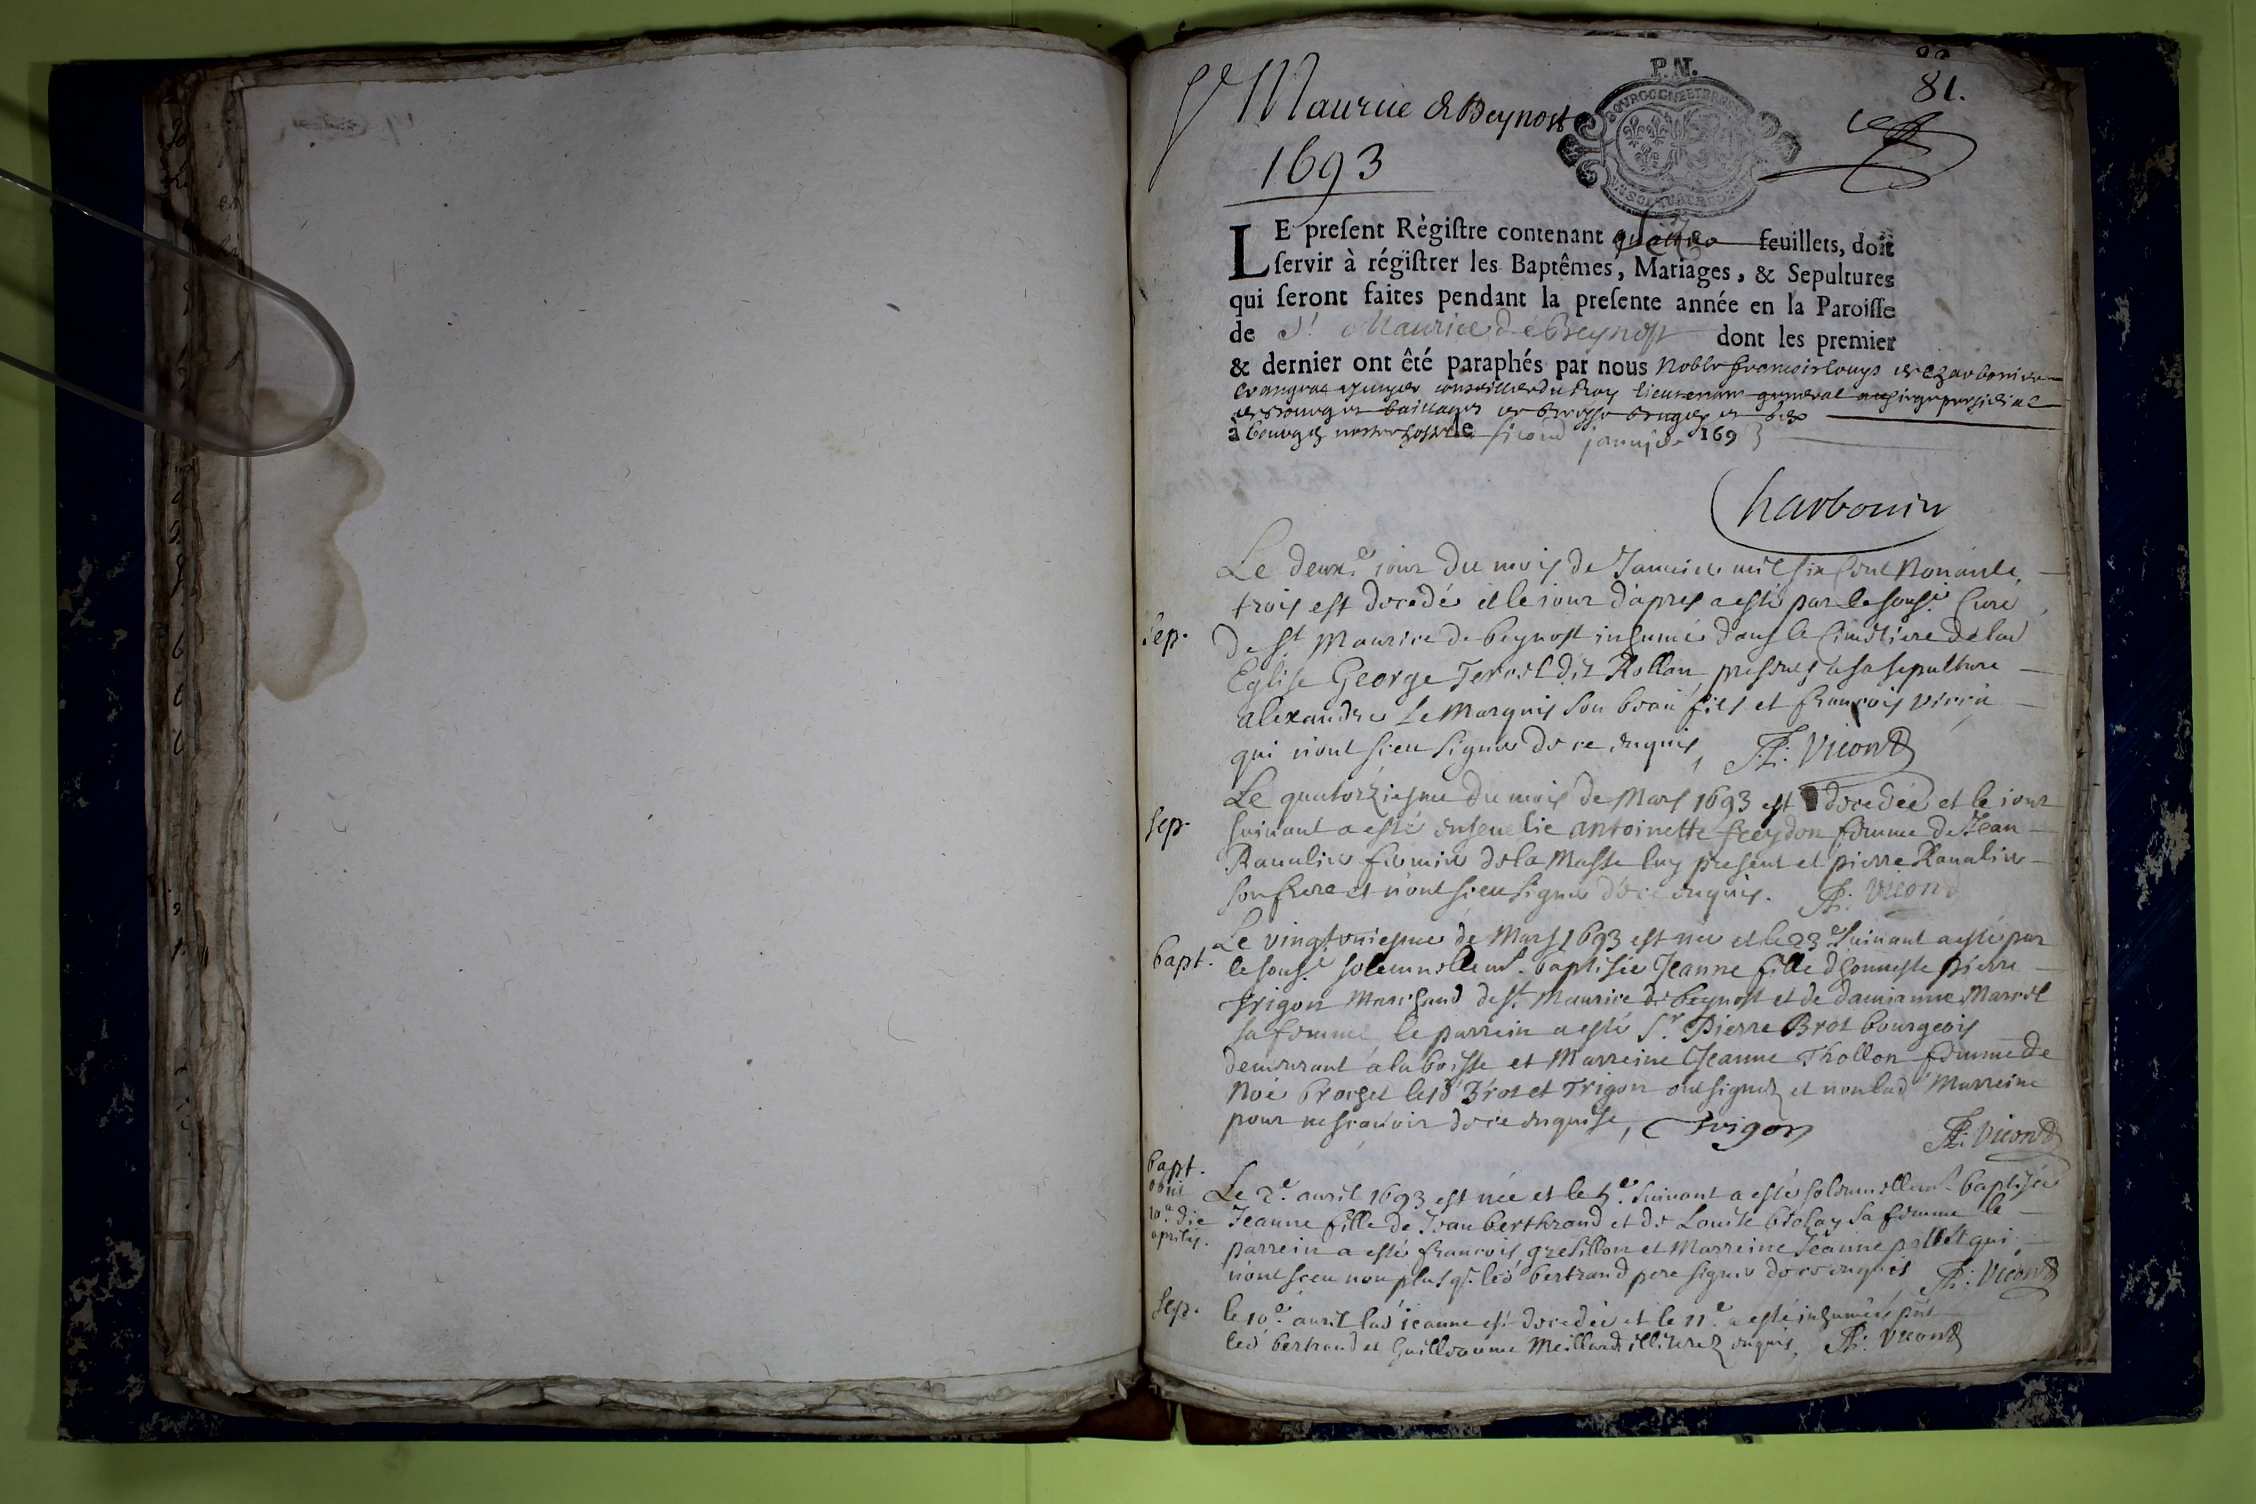 P.N.
81.
St Maurice de Beynost
1693
LE present Régistre contenant quatre feuillets, doit
servir à régistrer les Baptêmes, Mariages, & Sepultures
qui seront faites pendant la presente année en la Paroisse
de St Maurice de Beynost dont les premier
& dernier ont êté paraphés par nous Noble francois Louys de Charbonier
conseiller du Roy lieutenant general au siege presidial
bailliages de bresse bugey et gex
à bourg le second janvier 1693
Charbonier
Le deuxe. iour du mois de Januier mil six Cent Nonante
trois est decedé et le iour d'apres a esté par le sousé. Curé
Sep. De St Maurice de beynost inhumé dans le Cimetiere de lad
Eglise George Terrel dit Rollan, presents a sa sepulture
alexandre Le Marquis son beau fils et francois
qui n'ont sceu signer de ce enquis, Vicond
Le quatorziesme du mois de Mars 1693 est decedée et le iour
Sep. suiuant a esté enseuelie Antoinette freydon femme de Jean
Raualier fermier de la Masse luy present et pierre Raualier
son frere et n'ont sceu signer de ce enquis. Vicond
Le vingtvniesme de Mars 1693 est née et le 23e suiuant a esté par
bapt. le sousé. solemnellemt. baptisée Jeanne fille d'honneste pierre
Trigon Marchand de St. Maurice de beynost et de damianne Marrel
sa femme, le parrein a esté Sr. Pierre Brot bourgeois
demeurant a la boisse et Marreine Jeanne Thollon femme de
Noé brochet lesd Brot et Trigon ont signez et non lad Marreine
pour ne scauoir de ce enquise, Trigon
Vicond
bapt.
obiit
10a. die
aprilis.
Le 2e. auril 1693 est née et le 5e. suiuant a esté solemnellemt baptisée
Jeanne fille de Jean berthrand et de Louise sa femme le
parrein a esté francois gresillon et Marreine Jeanne pollet qui
n'ont sceu non plus q. led bertrand pere signer de ce enquis Vicond
Sep. le 10e. auril lad ieanne est decedée et le 11e. a esté inhumée pnt
led bertrand et Guillaume Meilland illiterez enquis, Vicond